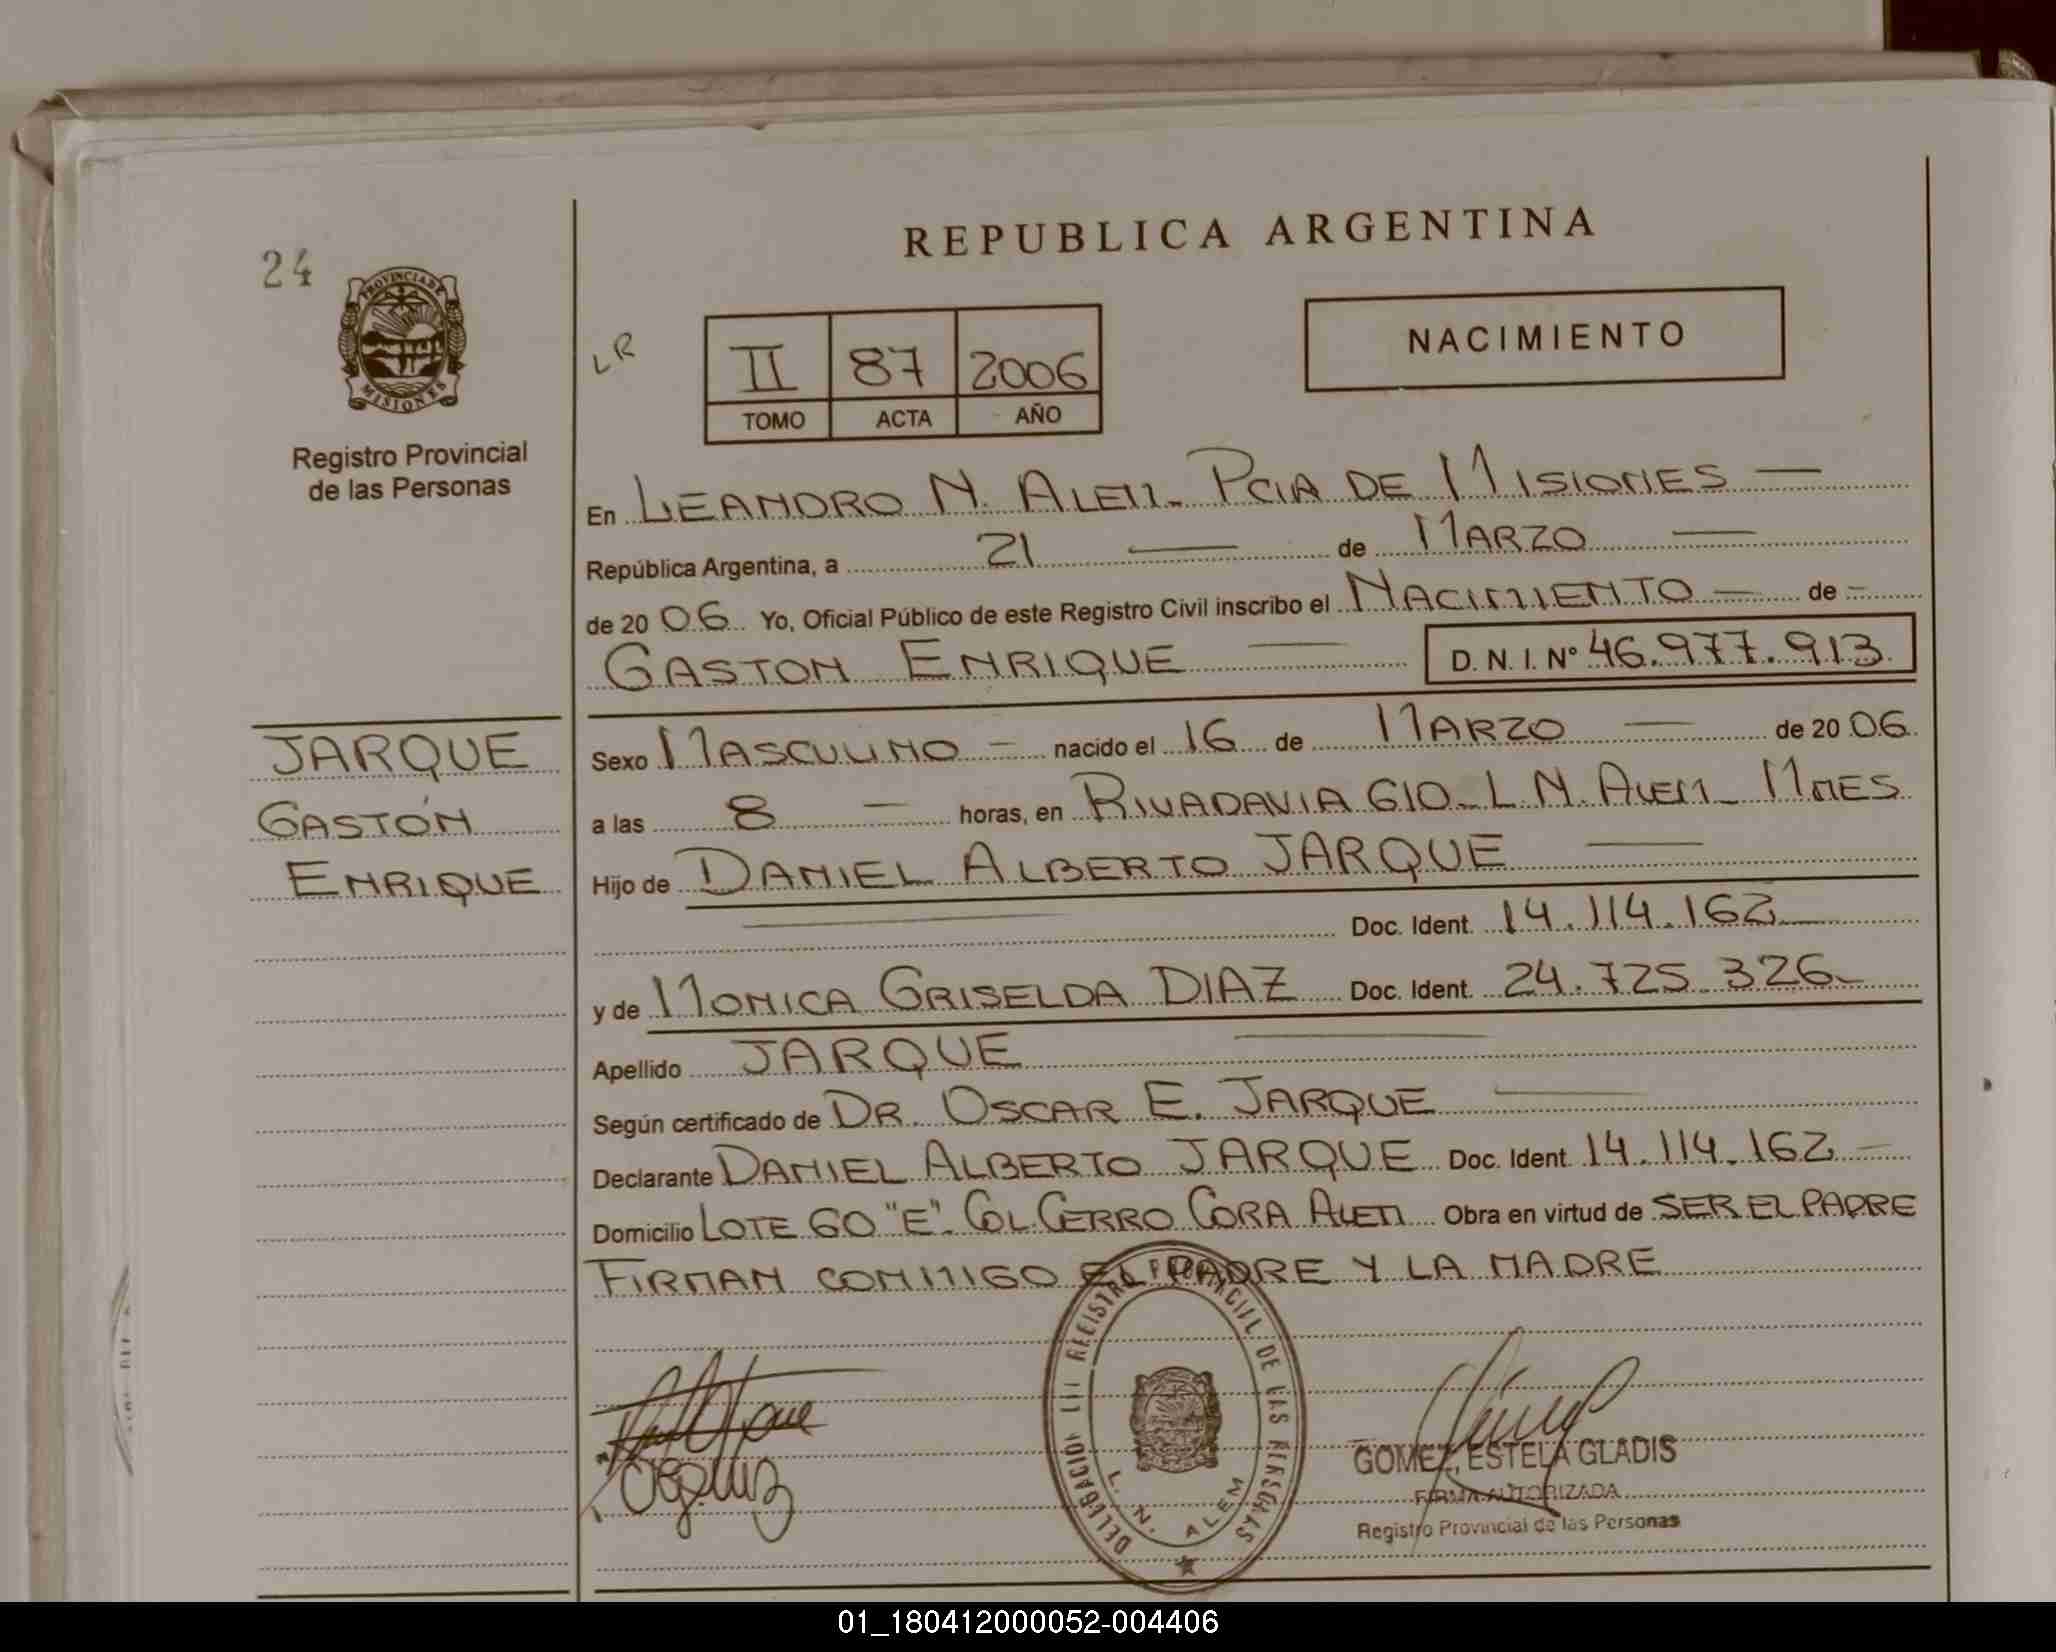 REPUBLICA ARGENTINA
24
PROVINCIA DE
MISIONES
Registro Provincial
de las Personas
LR
II 87 2006
TOMO ACTA AÑO
NACIMIENTO
En LEANDRO N. ALEM_ PCIA DE MISIONES —
República Argentina, a 21 — de MARZO —
de 20 06 Yo, Oficial Público de este Registro Civil inscribo el NACIMIENTO — de -
GASTON ENRIQUE — D. N. I. Nº 46.977.913
JARQUE
GASTÓN
ENRIQUE
Sexo MASCULINO — nacido el 16 de MARZO — de 20 06
a las 8 — horas, en RIVADAVIA 610_ L N. ALEM_ MNES
Hijo de DANIEL ALBERTO JARQUE —
— Doc. Ident. 14.114.162
y de MONICA GRISELDA DIAZ Doc. Ident. 24.725.326_
Apellido JARQUE —
Según certificado de DR. OSCAR E. JARQUE —
Declarante DANIEL ALBERTO JARQUE Doc. Ident. 14.114.162 —
Domicilio LOTE 60 "E". COL. CERRO CORA ALEM Obra en virtud de SER EL PADRE
FIRMAN CONMIGO EL PADRE Y LA MADRE
DELEGACION REGISTRO PROVINCIAL DE LAS PERSONAS
L. N. ALEM
GOMEZ, ESTELA GLADIS
FIRMA AUTORIZADA
Registro Provincial de las Personas
01_180412000052-004406